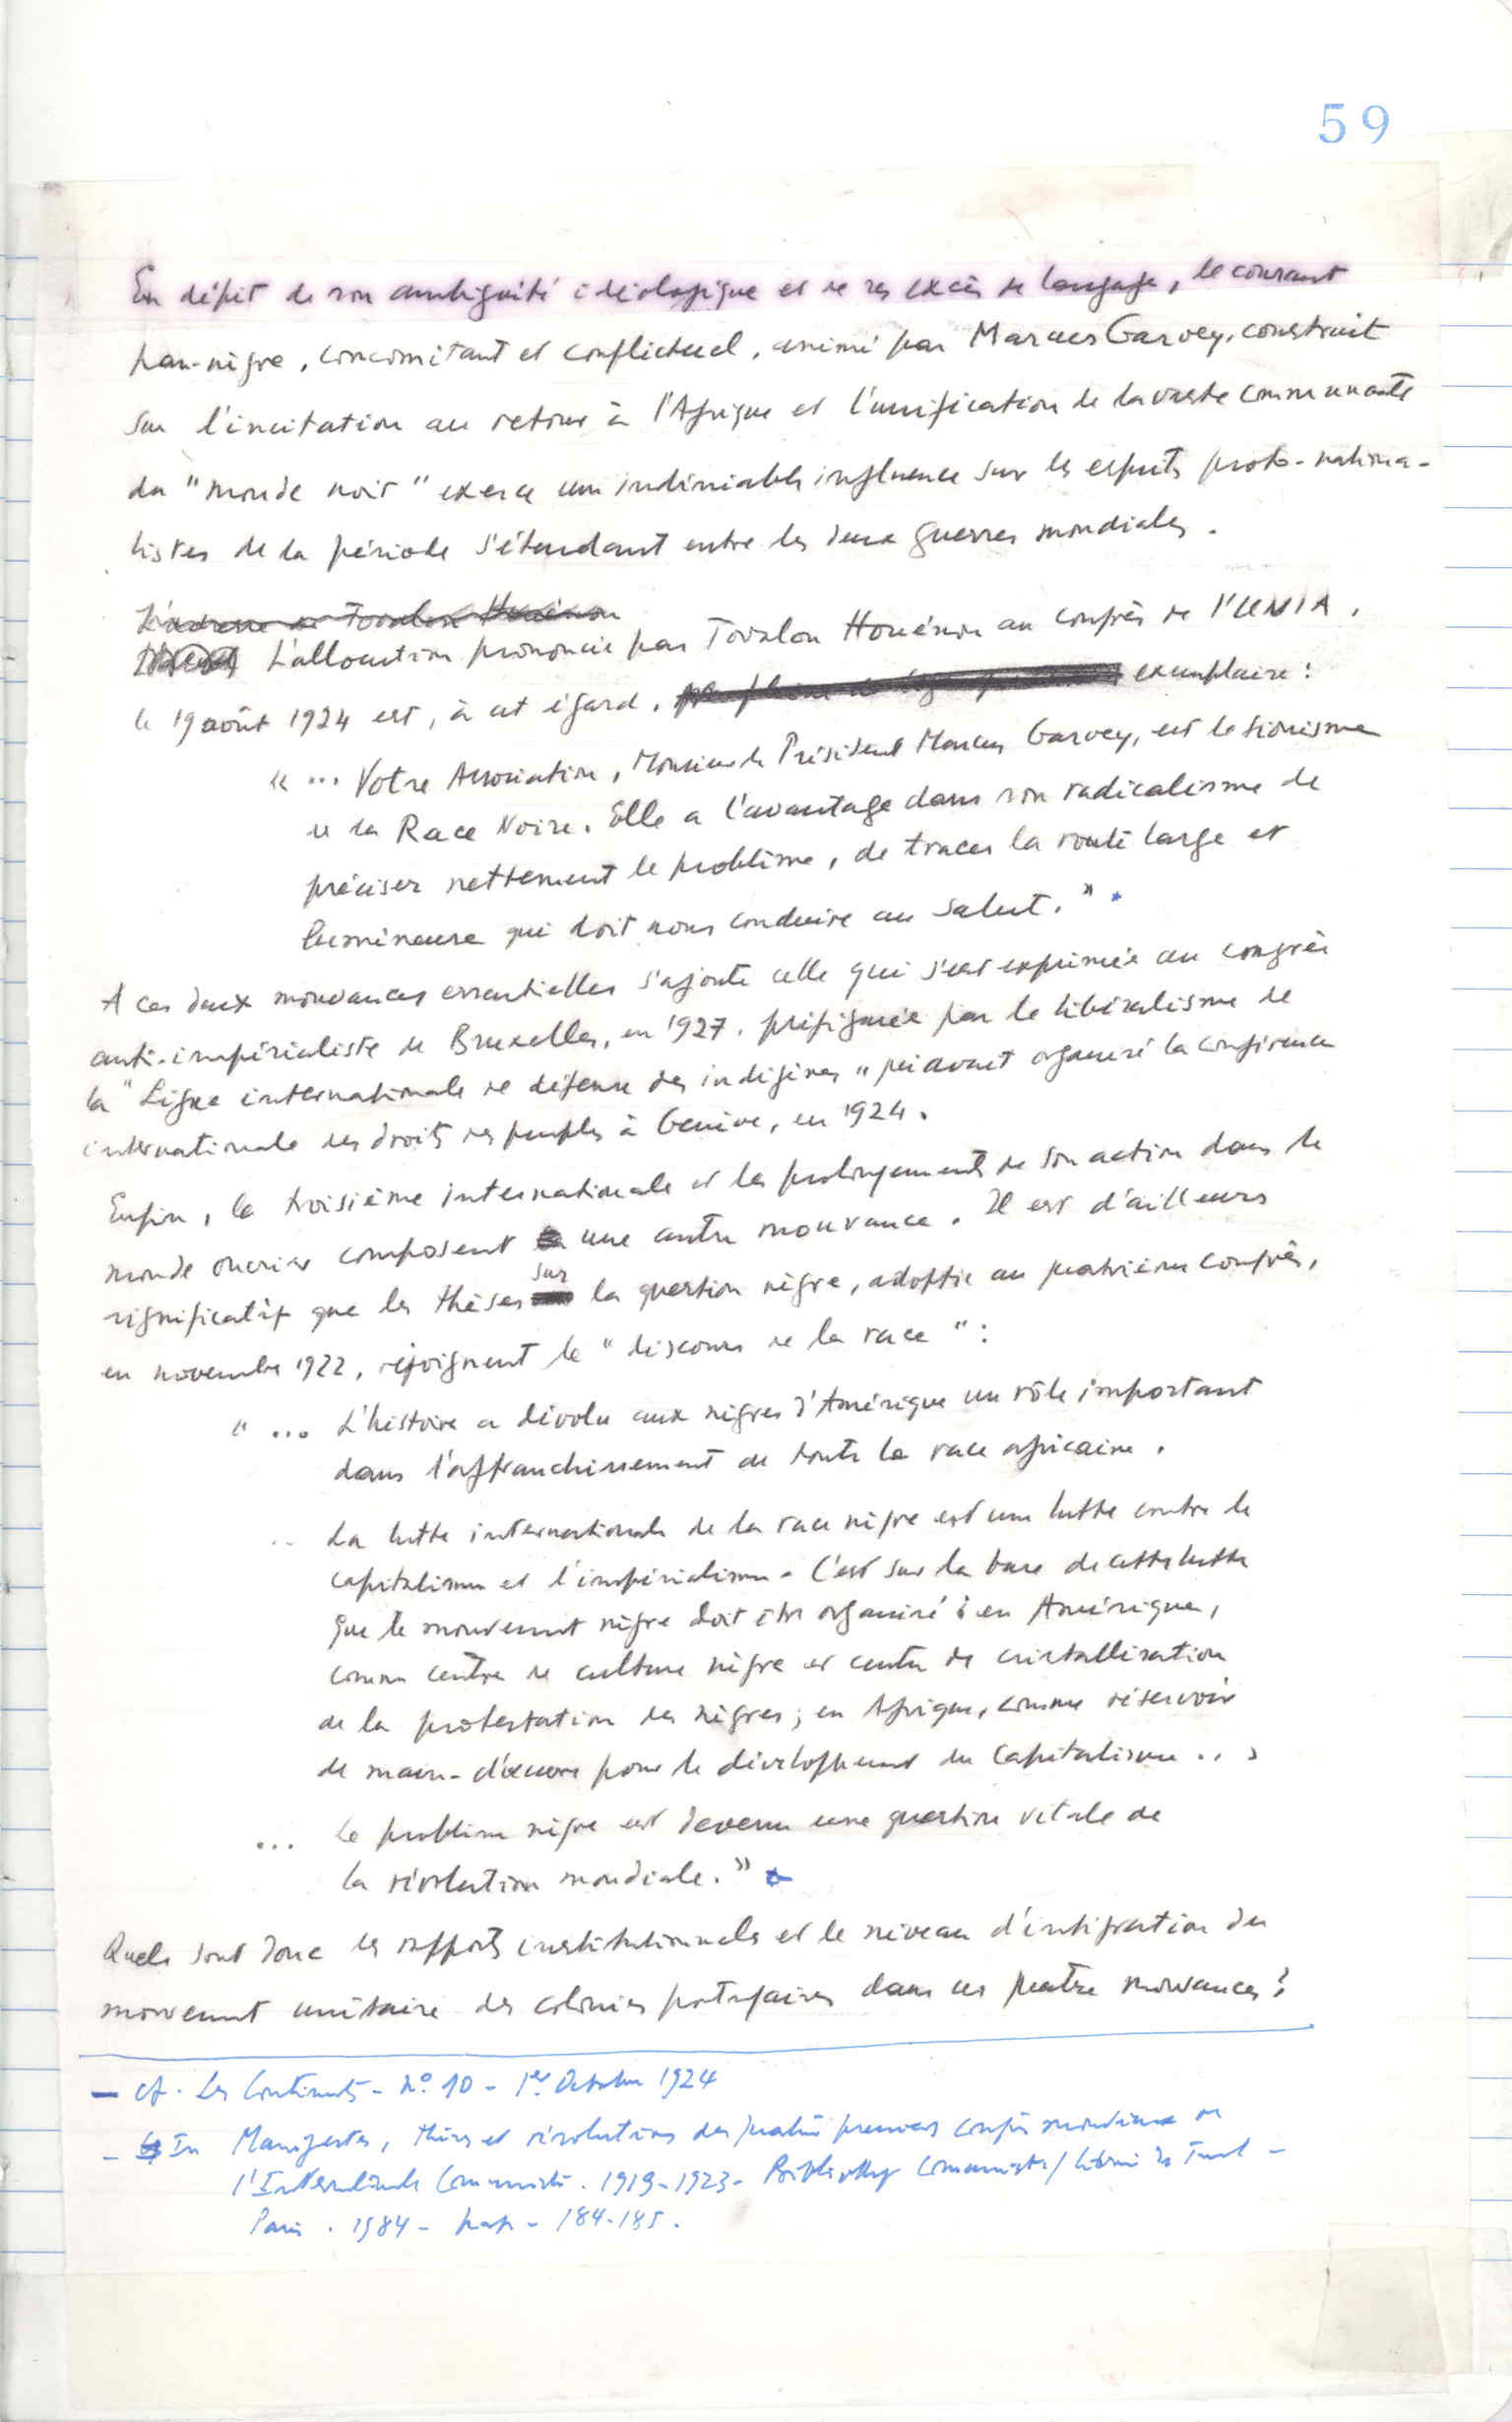 59
En dépit de son ambiguité idéologique et de ses excès de langage, le courant
pan-nègre, concomitant et conflictuel, animé par Marcus Garvey, construit
sur l'incitation au retour à l'Afrique et l'unification de la vaste communauté
du "monde noir" exerce une indéniable influence sur les esprits proto-nationa-
listes de la période s'étendant entre les deux guerres mondiales.
L'adresse de Tovalou Houénou
L'allocution prononcée par Tovalou Houénou au congrès de l'UNIA,
le 19 août 1924 est, à cet égard, exemplaire :
« ... Votre Association, Monsieur le Président Marcus Garvey, est le sionisme
de la Race Noire. Elle a l'avantage dans son radicalisme de
préciser nettement le problème, de tracer la route large et
lumineuse qui doit nous conduire au salut. » *
A ces deux mouvances essentielles s'ajoute celle qui s'est exprimée au congrès
anti-impérialiste de Bruxelles, en 1927, préfigurée par le libéralisme de
la "Ligue internationale de défense des indigènes" qui avait organisé la conférence
internationale des droits des peuples à Genève, en 1924.
Enfin, la troisième internationale et les prolongements de son action dans le
monde ouvrier composent une autre mouvance. Il est d'ailleurs
significatif que les thèses sur la question nègre, adoptée au quatrième congrès,
en novembre 1922, rejoignent le "discours de la race" :
" ... L'histoire a dévolu aux nègres d'Amérique un rôle important
dans l'affranchissement de toute la race africaine.
.. La lutte internationale de la race nègre est une lutte contre le
capitalisme et l'impérialisme. C'est sur la base de cette lutte
que le mouvement nègre doit être organisé : en Amérique,
comme centre de culture nègre et centre de cristallisation
de la protestation des nègres ; en Afrique, comme réservoir
de main-d'œuvre pour le développement du Capitalisme ...
... Le problème nègre est devenu une question vitale de
la révolution mondiale. » *
Quels sont donc les rapports institutionnels et le niveau d'intégration du
mouvement unitaire des colonies portugaises dans ces quatre mouvances ?
- cf. Les Continents - No 10 - 1er Octobre 1924
- In Manifestes, thèses et résolutions des quatre premiers congrès mondiaux de
l'Internationale Communiste. 1919-1923 - Bibliothèque Communiste / Librairie du Travail -
Paris. 1984 - pp - 184-185.